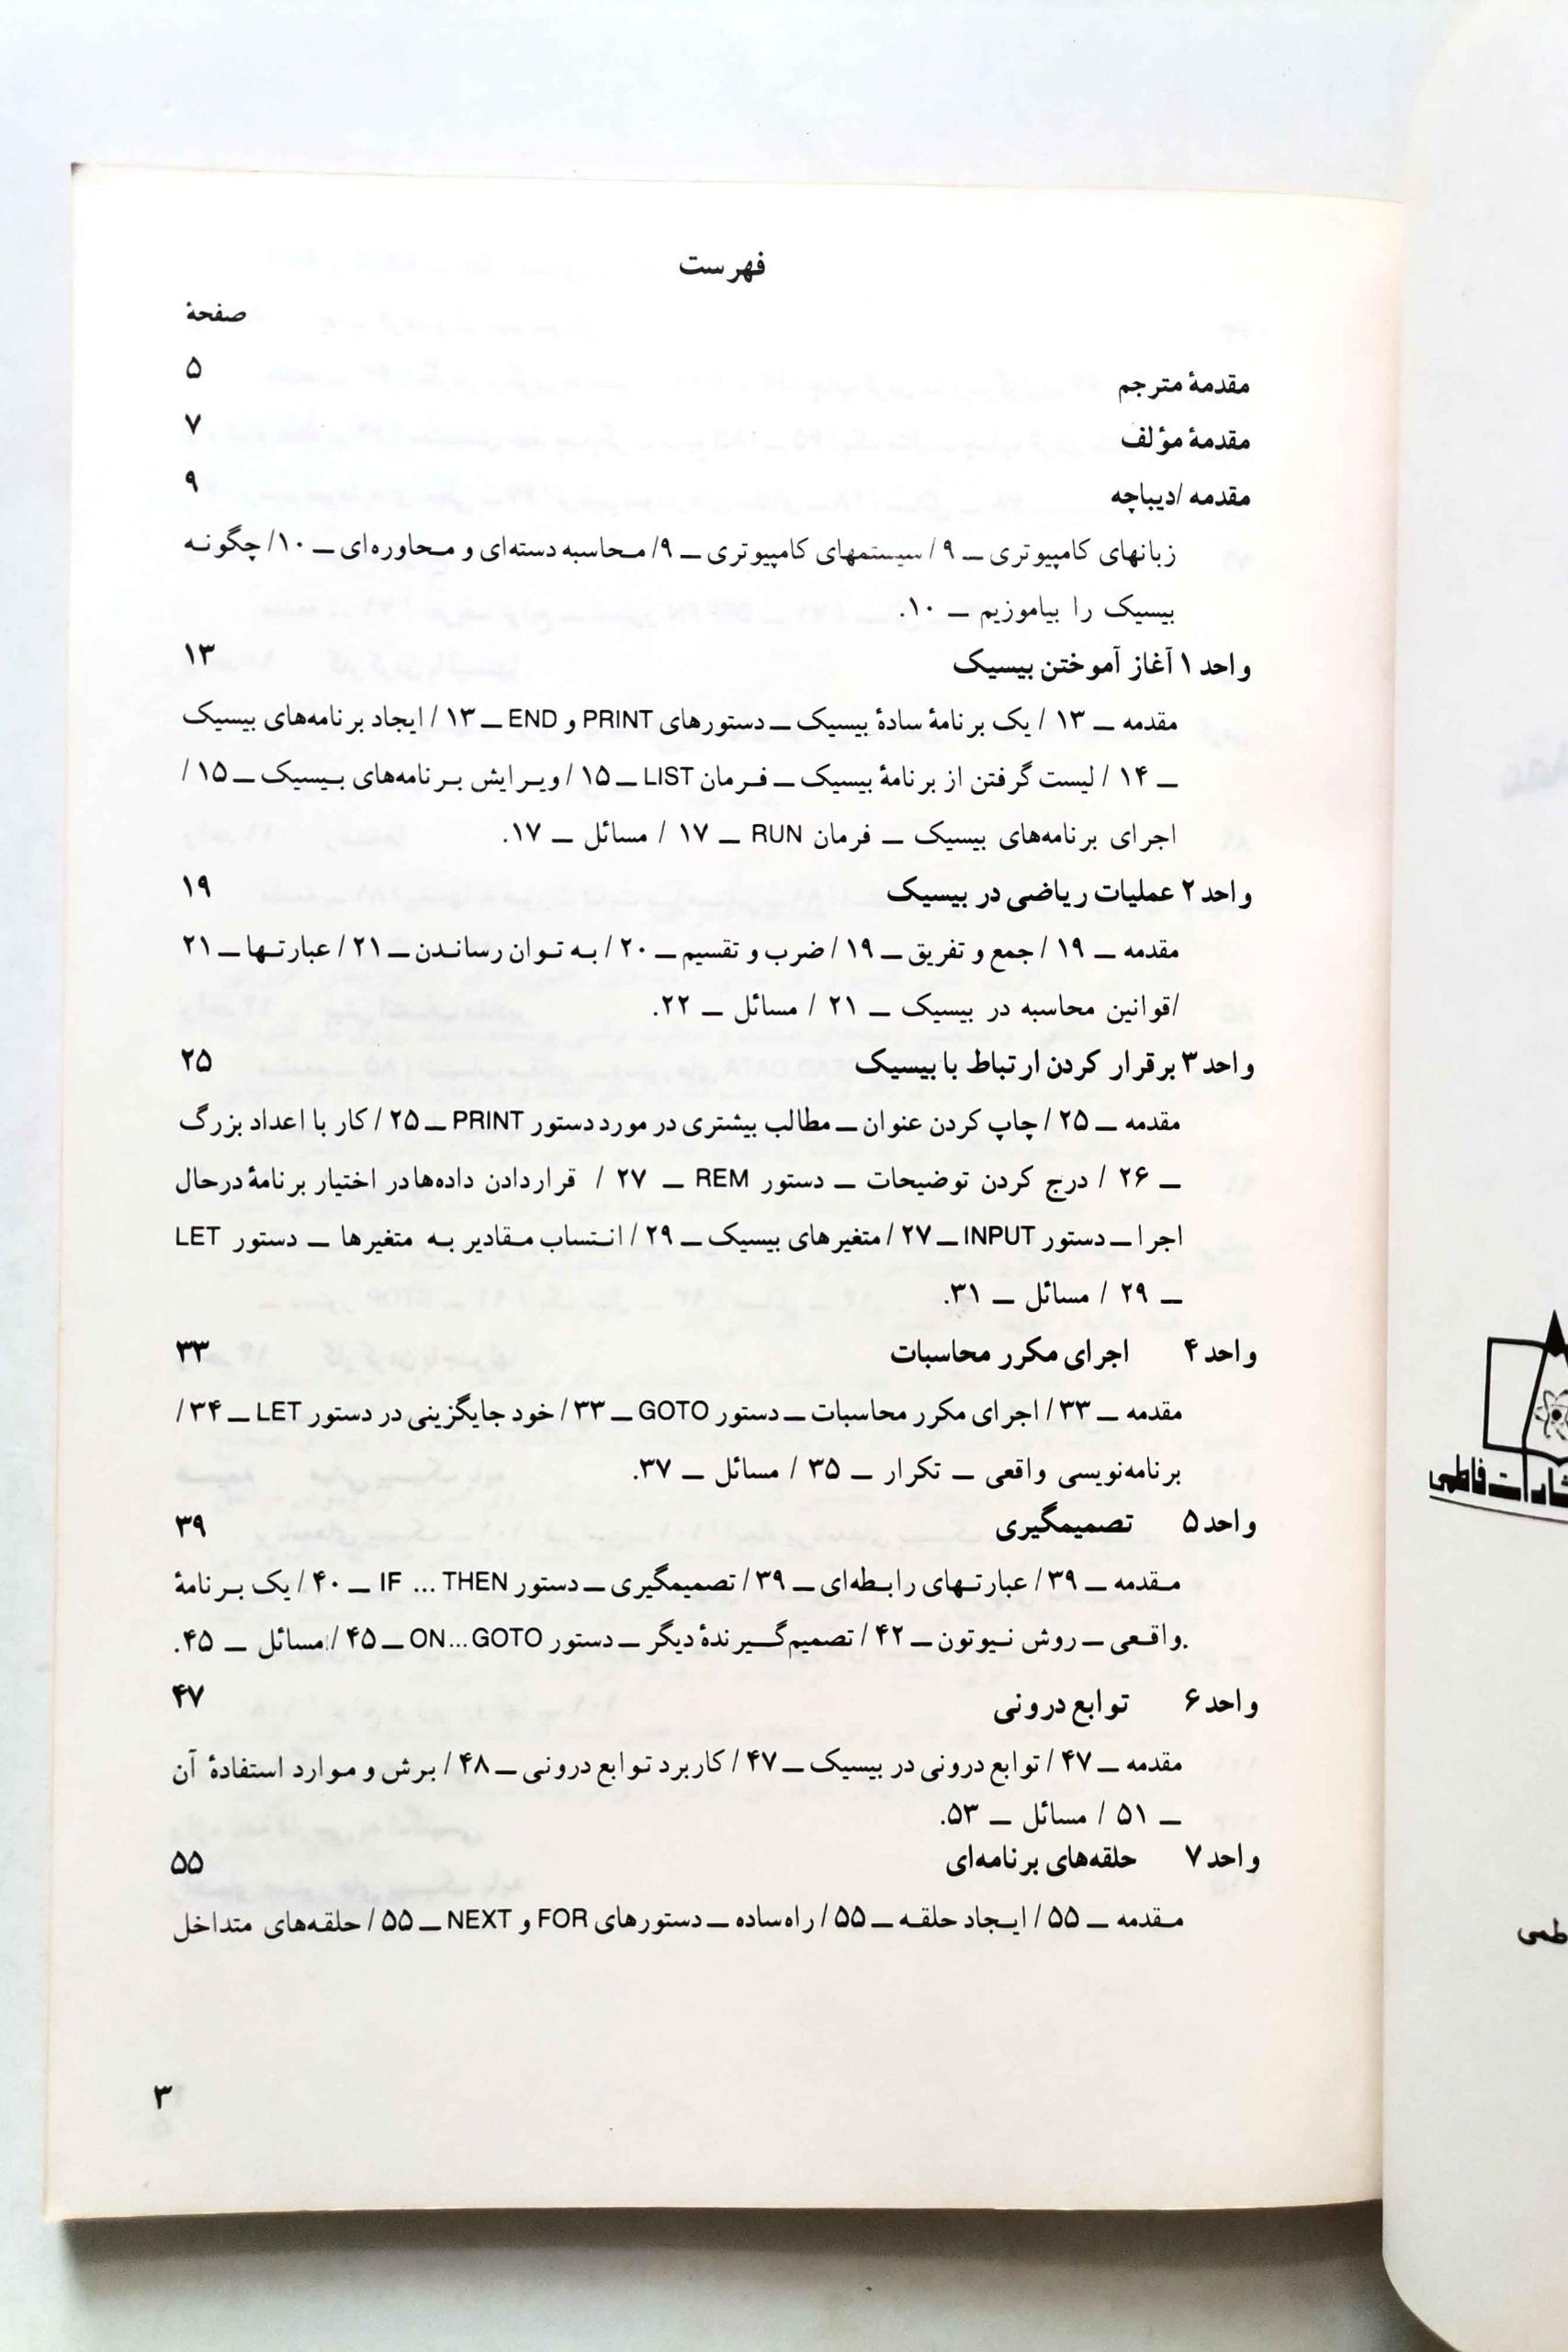 فهرست
صفحهٔ
مقدمهٔ مترجم ۵
مقدمهٔ مؤلف ۷
مقدمه /دیباچه ۹
زبانهای کامپیوتری ــ ۹ / سیستمهای کامپیوتری ــ ۹/ محاسبه دسته‌ای و محاوره‌ای ــ ۱۰/ چگونه
بیسیک را بیاموزیم ــ ۱۰.
واحد ۱ آغاز آموختن بیسیک ۱۳
مقدمه ــ ۱۳ / یک برنامهٔ سادهٔ بیسیک ــ دستورهای PRINT و END ــ ۱۳ / ایجاد برنامه‌های بیسیک
ــ ۱۴ / لیست گرفتن از برنامهٔ بیسیک ــ فرمان LIST ــ ۱۵ / ویرایش برنامه‌های بیسیک ــ ۱۵ /
اجرای برنامه‌های بیسیک ــ فرمان RUN ــ ۱۷ / مسائل ــ ۱۷.
واحد ۲ عملیات ریاضی در بیسیک ۱۹
مقدمه ــ ۱۹ / جمع و تفریق ــ ۱۹ / ضرب و تقسیم ــ ۲۰ / به توان رساندن ــ ۲۱ / عبارتها ــ ۲۱
/قوانین محاسبه در بیسیک ــ ۲۱ / مسائل ــ ۲۲.
واحد ۳ برقرار کردن ارتباط با بیسیک ۲۵
مقدمه ــ ۲۵ / چاپ کردن عنوان ــ مطالب بیشتری در مورد دستور PRINT ــ ۲۵ / کار با اعداد بزرگ
ــ ۲۶ / درج کردن توضیحات ــ دستور REM ــ ۲۷ / قراردادن داده‌ها در اختیار برنامهٔ درحال
اجرا ــ دستور INPUT ــ ۲۷ / متغیرهای بیسیک ــ ۲۹ / انتساب مقادیر به متغیرها ــ دستور LET
ــ ۲۹ / مسائل ــ ۳۱.
واحد ۴ اجرای مکرر محاسبات ۳۳
مقدمه ــ ۳۳ / اجرای مکرر محاسبات ــ دستور GOTO ــ ۳۳ / خود جایگزینی در دستور LET ــ ۳۴ /
برنامه‌نویسی واقعی ــ تکرار ــ ۳۵ / مسائل ــ ۳۷.
واحد ۵ تصمیمگیری ۳۹
مقدمه ــ ۳۹ / عبارتهای رابطه‌ای ــ ۳۹ / تصمیمگیری ــ دستور IF ... THEN ــ ۴۰ / یک برنامهٔ
واقعی ــ روش نیوتون ــ ۴۲ / تصمیم‌گیرندهٔ دیگر ــ دستور ON...GOTO ــ ۴۵ / مسائل ــ ۴۵.
واحد ۶ توابع درونی ۴۷
مقدمه ــ ۴۷ / توابع درونی در بیسیک ــ ۴۷ / کاربرد توابع درونی ــ ۴۸ / برش و موارد استفادهٔ آن
ــ ۵۱ / مسائل ــ ۵۳.
واحد ۷ حلقه‌های برنامه‌ای ۵۵
مقدمه ــ ۵۵ / ایجاد حلقه ــ ۵۵ / راه‌ساده ــ دستورهای FOR و NEXT ــ ۵۵ / حلقه‌های متداخل
۳